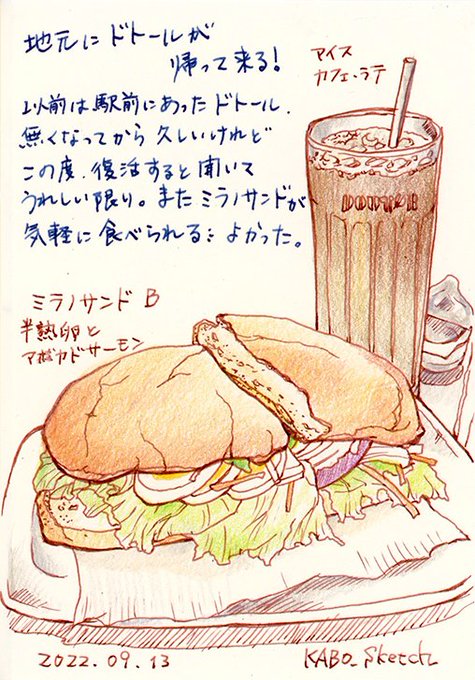 地元にドトールが
帰って来る!
以前は駅前にあったドトール.
無くなってから久しいけれど
この度、復活すると聞いて
うれしい限り。またミラノサンドが
気軽に食べられる… よかった。
アイス
カフェ・ラテ
DOUTOR
ミラノサンド B
半熟卵と
アボカドサーモン
2022.09.13
KABO_Sketch